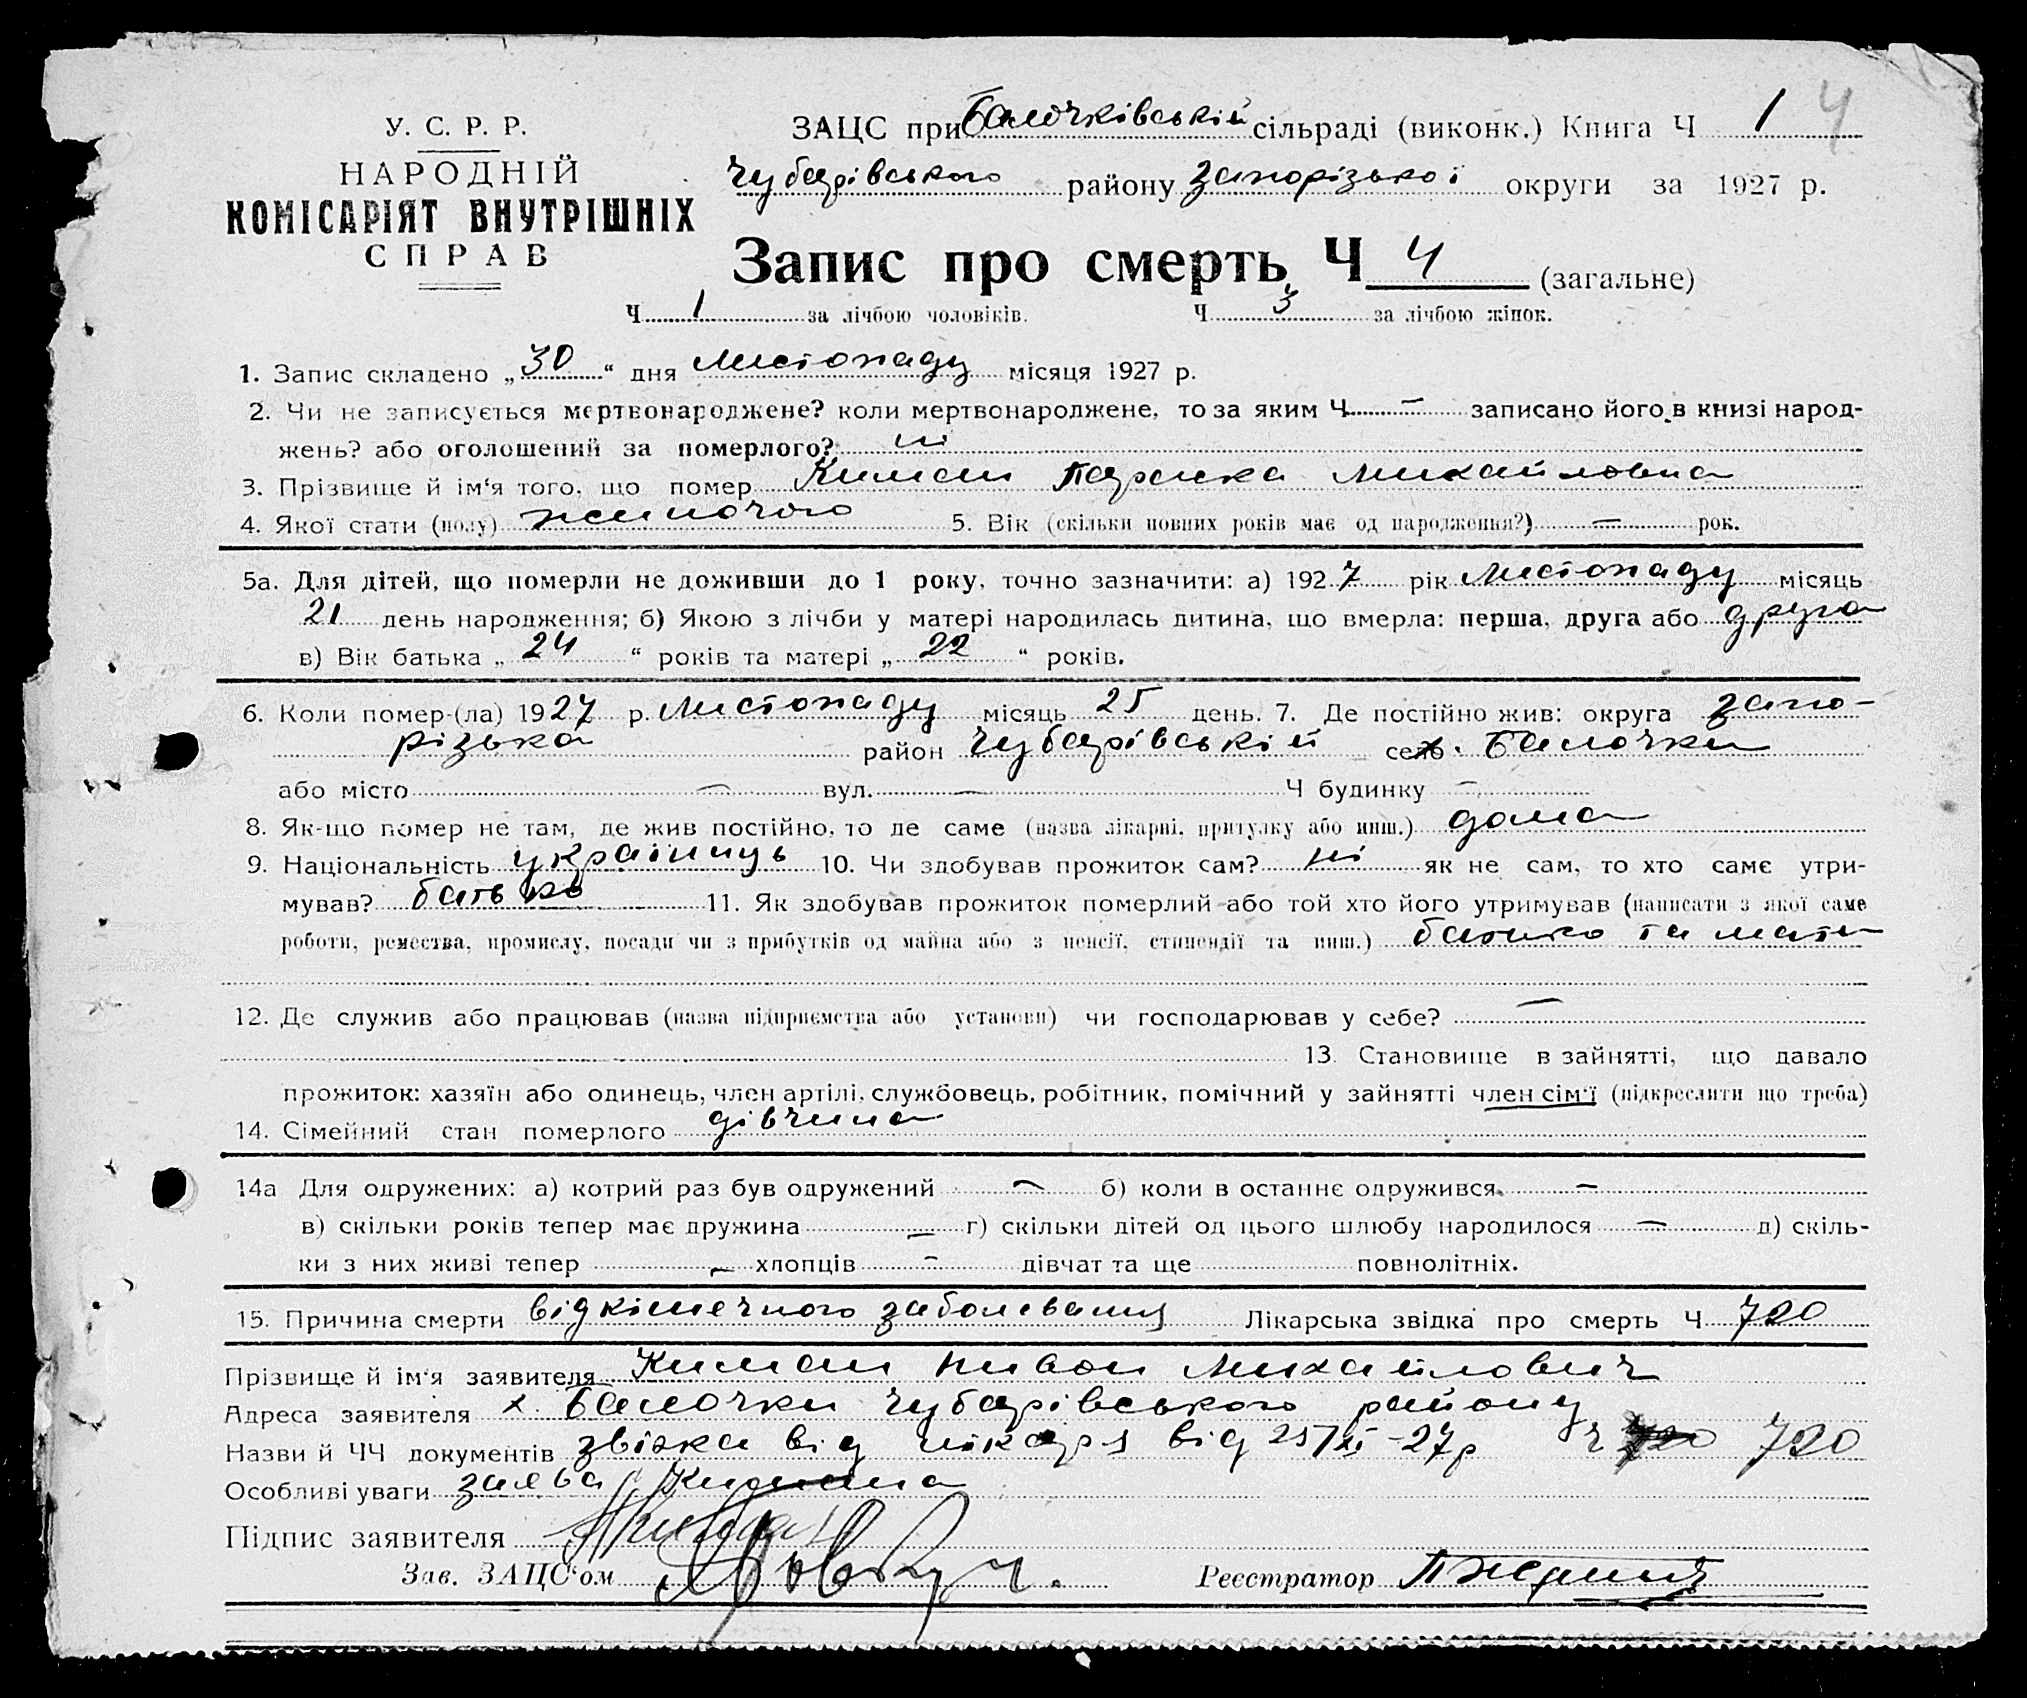 У. С. Р. Р.
НАРОДНІЙ
КОМІСАРІЯТ ВНУТРІШНІХ
СПРАВ
ЗАЦС при Балочківській сільраді (виконк.) Книга Ч 1 4
Чубарівського району Запорізької округи за 1927 р.
Запис про смерть Ч 4 (загальне)
Ч 1 за лічбою чоловіків. Ч 3 за лічбою жінок.
1. Запис складено „30“ дня Листопаду місяця 1927 р.
2. Чи не записується мертвонароджене? коли мертвонароджене, то за яким Ч — записано його в книзі народ-
жень? або оголошений за померлого? ні
3. Прізвище й ім'я того, що помер Киман Параска Михайловна
4. Якої стати (полу) жиночого 5. Вік (скільки повних років має од народження?) — рок.
5а. Для дітей, що померли не доживши до 1 року, точно зазначити: а) 1927 рік Листопаду місяць
21 день народження; б) Якою з лічби у матері народилась дитина, що вмерла: перша, друга або друга
в) Вік батька „24“ років та матері „22“ років.
6. Коли помер-(ла) 1927 р. Листопаду місяць 25 день. 7. Де постійно жив: округа Запо-
різька район Чубарівський село х. Балочки
або місто — вул. — Ч будинку —
8. Як-що помер не там, де жив постійно, то де саме (назва лікарні, притулку або инш.) дома
9. Національність українць 10. Чи здобував прожиток сам? ні як не сам, то хто саме утри-
мував? батько 11. Як здобував прожиток померлий або той хто його утримував (написати з якої саме
роботи, ремества, промислу, посади чи з прибутків од майна або з пенсії, стипендії та инш.) батько та мати
12. Де служив або працював (назва підприємства або установи) чи господарював у себе? —
13. Становище в зайнятті, що давало
прожиток: хазяїн або одинець, член артілі, службовець, робітник, помічний у зайнятті член сім'ї (підкреслити що треба)
14. Сімейний стан померлого дівчина
14а Для одружених: а) котрий раз був одружений — б) коли в останнє одружився —
в) скільки років тепер має дружина — г) скільки дітей од цього шлюбу народилося — д) скіль-
ки з них живі тепер — хлопців — дівчат та ще повнолітніх.
15. Причина смерти від кішечного заболевания Лікарська звідка про смерть Ч 720
Прізвище й ім'я заявителя Киман Михайлович
Адреса заявителя х. Балочки Чубарівського району
Назви й ЧЧ документів звідка від лікаря від 25/XI-27р Ч 720 720
Особливі уваги заява Кимана
Підпис заявителя
Зав. ЗАЦС'ом
Реєстратор